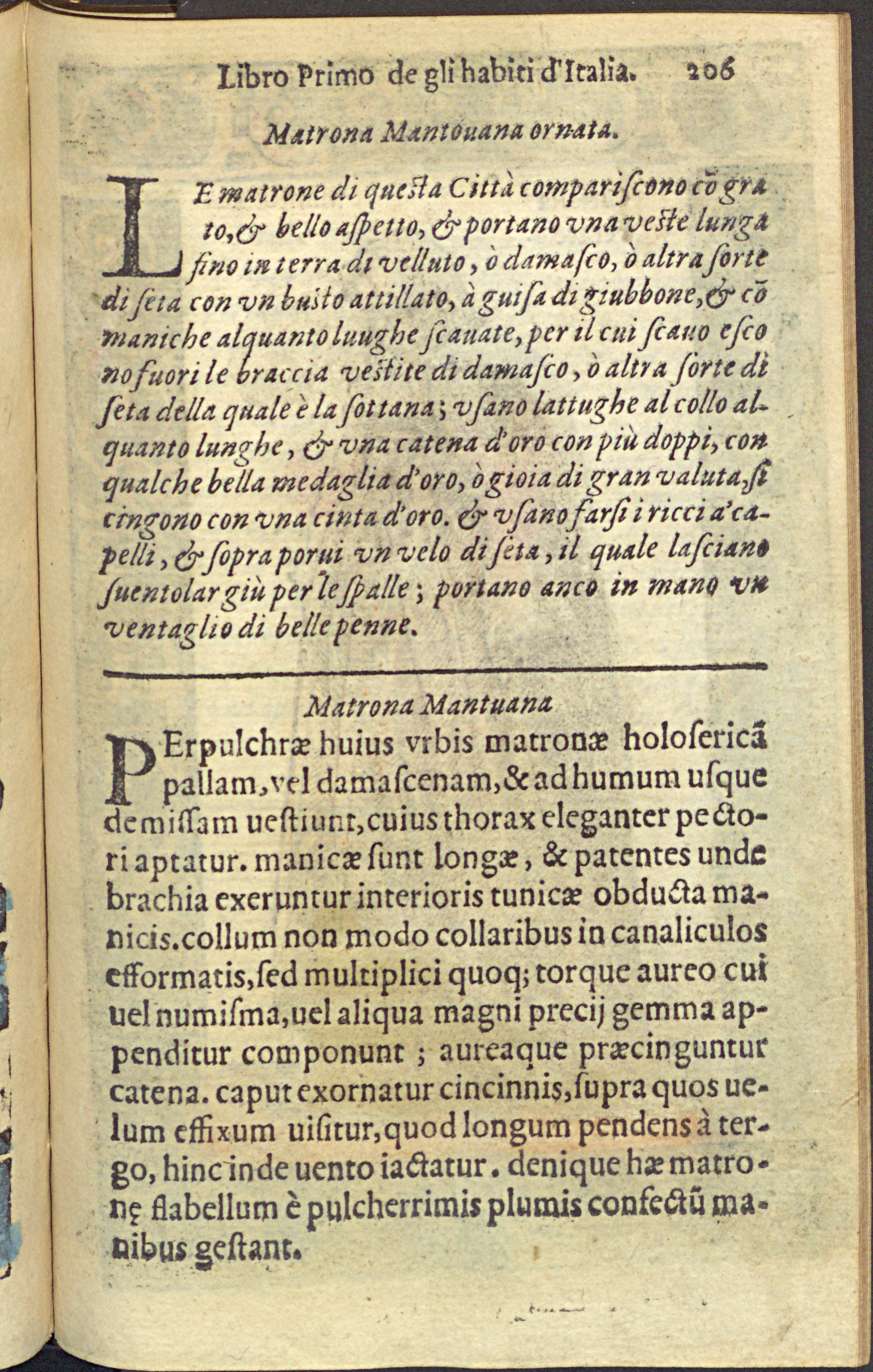 Libro Primo de gli habiti d'Italia. 206
Matrona Mantouana ornata.
LE matrone di questa Città compariſcono cõ gra
to, & bello aſpetto, & portano vna veste lunga
fino in terra di velluto, ò damaſco, ò altra ſorte
di ſeta con vn busto attillato, à guiſa di giubbone, & cõ
maniche alquanto luughe ſcauate, per il cui ſcauo eſco
no fuori le braccia vestite di damaſco, ò altra ſorte di
ſeta della quale è la ſottana; vſano lattughe al collo al-
quanto lunghe, & vna catena d'oro con più doppi, con
qualche bella medaglia d'oro, ò gioia di gran valuta, ſi
cingono con vna cinta d'oro. & vſano farſi i ricci a' ca-
pelli, & ſopra porui vn velo di ſeta, il quale laſciano
ſuentolar giù per le ſpalle; portano anco in mano vn
ventaglio di belle penne.
Matrona Mantuana
PErpulchræ huius vrbis matronæ holoſericã
pallam, vel damaſcenam, & ad humum uſque
demiſſam ueſtiunt, cuius thorax eleganter pecto-
ri aptatur. manicæ ſunt longæ, & patentes unde
brachia exeruntur interioris tunicæ obducta ma-
nicis. collum non modo collaribus in canaliculos
efformatis, ſed multiplici quoq; torque aureo cui
uel numiſma, uel aliqua magni precij gemma ap-
penditur componunt ; aureaque præcinguntur
catena. caput exornatur cincinnis, ſupra quos ue-
lum effixum uiſitur, quod longum pendens à ter-
go, hinc inde uento iactatur. denique hæ matro-
nę flabellum è pulcherrimis plumis confectũ ma-
nibus geſtant.